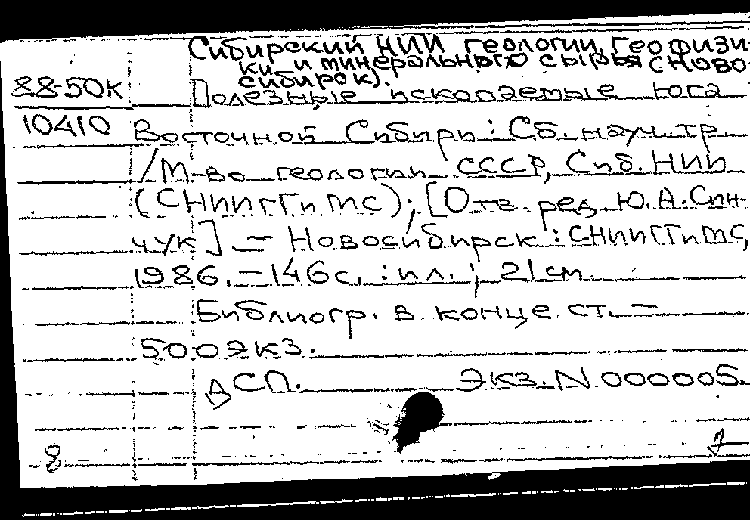 Сибирский НИИ геологии, геофизи
ки и минерального сырья (Ново
сибирск).
88-50К Полезные ископаемые юга
10410 Восточной Сибири: Сб. науч. тр.
/М-во геологии СССР, Сиб. НИИ
(СНИИГГиМС); [Отв. ред. Ю.А. Син-
чук] – Новосибирск: СНИИГГиМС,
1986. – 146с. : ил.; 21см.
Библиогр. в конце ст. –
500экз.
ДСП. Экз. N 000005
8